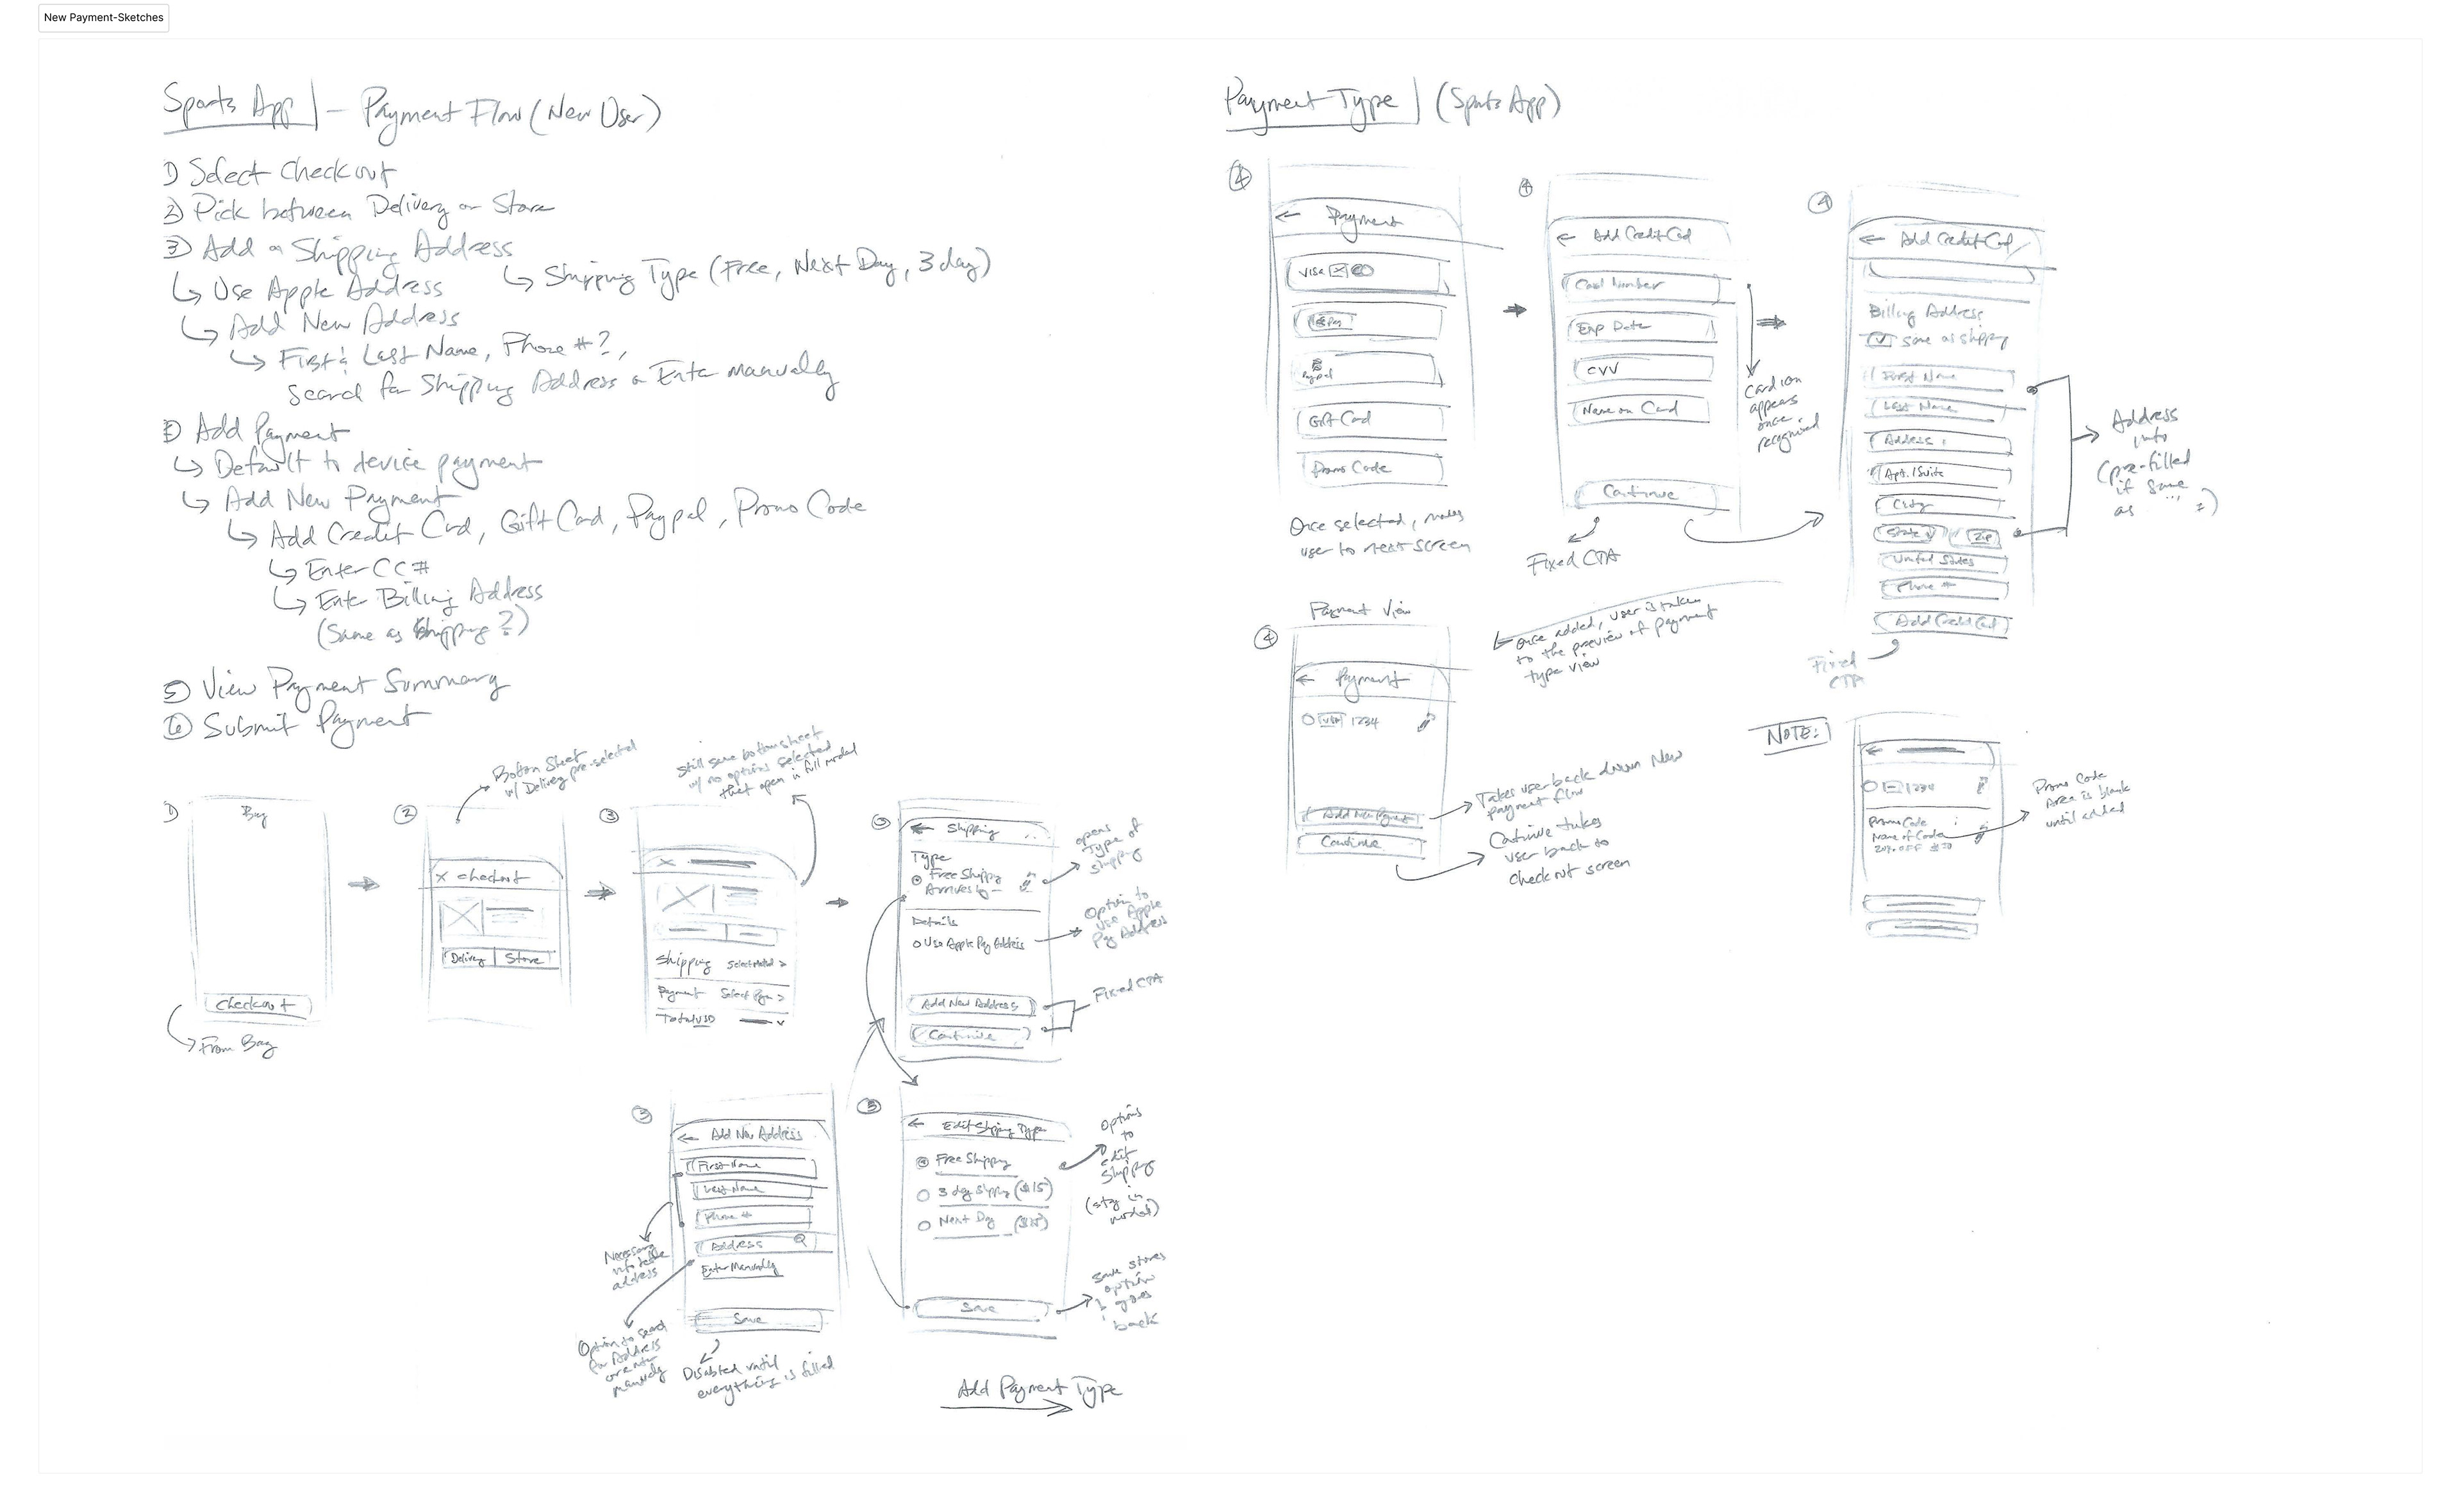 New Payment-Sketches
Sports App - Payment Flow (New User)
1) Select Checkout
2) Pick between Delivery or Store
3) Add a Shipping Address
↳ Shipping Type (Free, Next Day, 3 day)
↳ Use Apple Address
↳ Add New Address
↳ First & Last Name, Phone #?,
Search for Shipping Address or Enter Manually
Add Payment
↳ Default to device payment
↳ Add New Payment
↳ Add Credit Card, Gift Card, Paypal, Promo Code
↳ Enter CC#
↳ Enter Billing Address
(Same as Shipping?)
5) View Payment Summary
6) Submit Payment
Bottom Sheet
w/ Delivery pre-selected
Still same bottom sheet
w/ no options selected
that open in full modal
1)
Bag
Checkout
↳ From Bag
2
X Checkout
Delivery | Store
3
X
Shipping Select Method >
Payment Select Pym >
Total USD
← Shipping
Type
Free Shipping
Arrives by -
Details
Use Apple Pay Address
Add New Address
Continue
opens
Type of
Shipping
Option to
use Apple
Pay Address
Fixed CTA
3
← Add New Address
First Name
Last Name
Phone #
Address
Enter Manually
Save
Necessary
address
Option to search
for Address
or enter
manually
Disabled until
everything is filled
← Edit Shipping Type
Free Shipping
3 day Shipping ($15)
Next Day
Save
Options
to
edit
Shipping
(stay in
modal)
Save stores
option
& goes
back
Add Payment Type
Payment Type (Sports App)
4
← Payment
VISA
Pay
Paypal
Gift Card
Promo Code
Once selected, moves
user to next screen
4
← Add Credit Card
Card Number
Exp Date
CVV
Name on Card
Continue
Fixed CTA
Card icon
appears
once
recognized
4
← Add Credit Card
Billing Address
Same as shipping
First Name
Last Name
Address 1
Apt. / Suite
City
State
Zip
United States
Phone #
Add Credit Card
Fixed
CTA
Address
info
(pre-filled
if same
as
Once added, user is taken
to the preview of payment
type view
Payment View
4
← Payment
VISA 1234
Add New Payment
Continue
Takes user back down New
payment flow
Continue takes
user back to
checkout screen
NOTE:
←
1234
Promo Code
Name of Code
20% OFF
Promo Code
Area is blank
until added